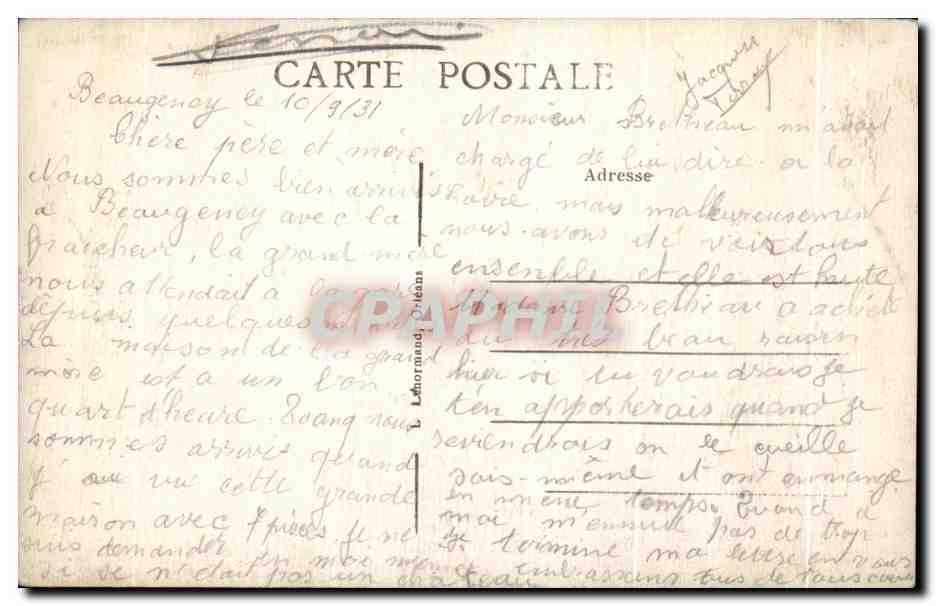 CARTE POSTALE
Jacques
Beaugency le 10/9/31
Chère père et mère
Nous sommes bien arrivés
à Beaugency avec la
fraicheur, la grand mère
nous attendait à la
depuis quelques
La maison de la grand
mère est a un bon
quart d'heure. Quang nous
sommes arrivés quand
j' vu cette grande
maison avec 7 pièces je me
suis demander en moi même
si se n'était pas un château
L. Lenormand, Orléans
CPAPHIL
Adresse
Monsieur Bretheau m'avait
chargé de lui dire a la
Loire mais malheureusement
nous avons été voir tous
ensemble et elle est haute
Madame Bretheau a acheté
du très beau raisin
hier si tu voudrais je
t'en apporterais quand je
reviendrois on le cueille
sois-même et on en mange
en même temps. Quand a
moi m'ennuie pas de trop
Je termine ma lettre en vous
embrassans tous de tous coeur